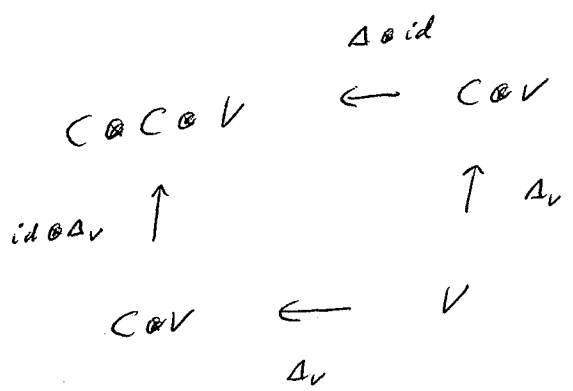 Δ ⊗ id
C ⊗ C ⊗ V ← C ⊗ V
id ⊗ Δ_V ↑ ↑ Δ_V
C ⊗ V ← V
Δ_V